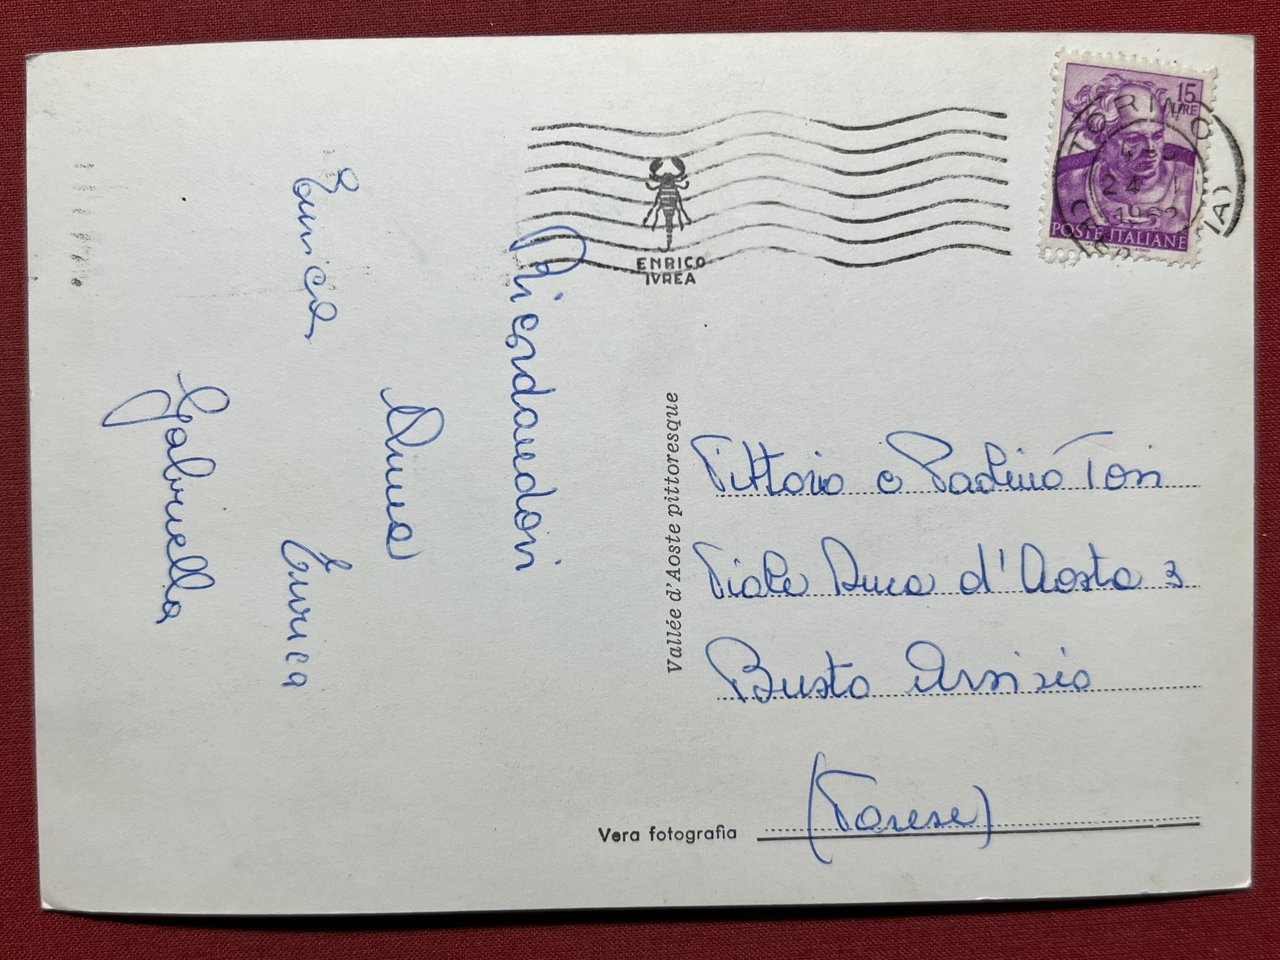 15
LIRE
POSTE ITALIANE
TORINO
24
1962
ENRICO
IVREA
Ricordandovi
Anna
Enrica
Gabriella
Vallée d'Aoste pittoresque
Vittorio e Paolino Tosi
Viale Duca d'Aosta 3
Busto Arsizio
(Varese)
Vera fotografia